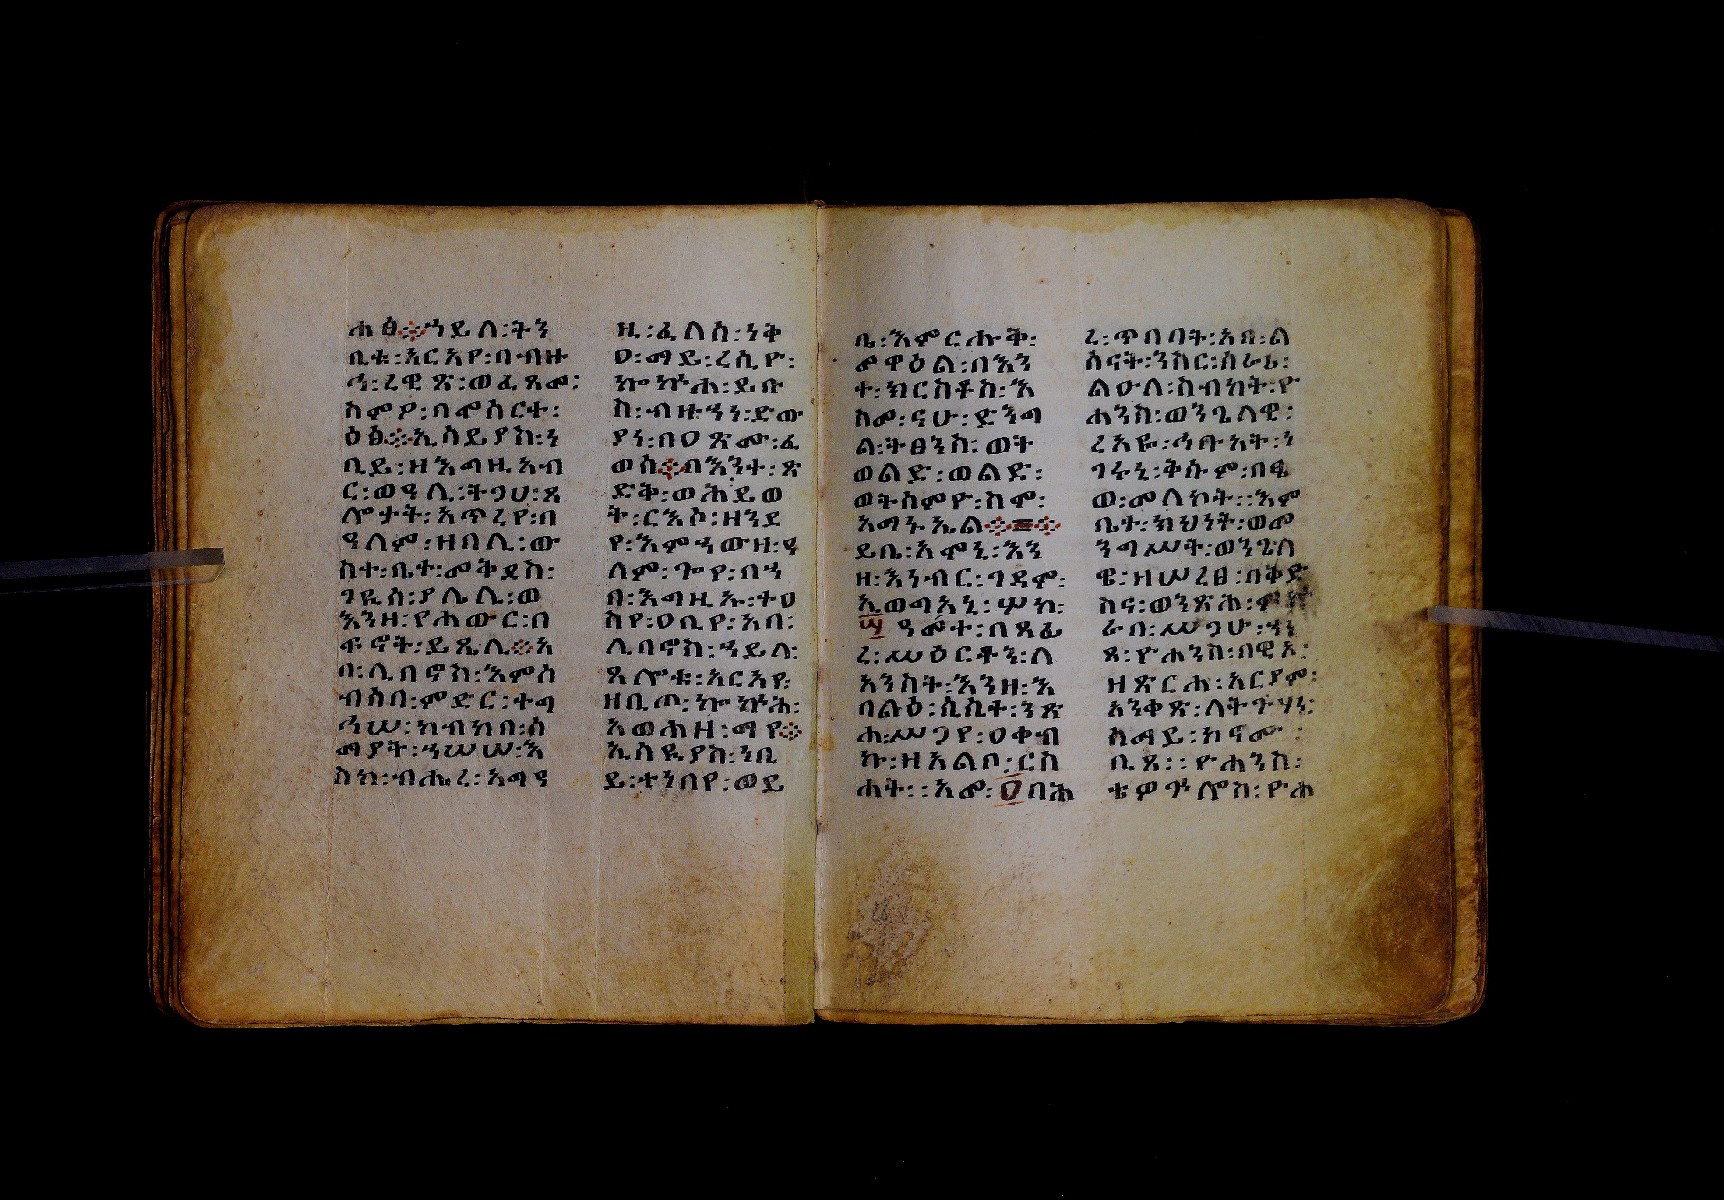 ሐፅ፨ኀይለ፡ትን
ቢቱ፡አርአየ፡በብዙ
ኅ፡ረዊጽ፡ወፈጸመ፡
ስሞ፡በሞሰርተ፡
ዕፅ፨ኢሳይያስ፡ነ
ቢይ፡ዘእግዚአብ
ር፡ወዓሊ፡ትጋህ፡ጸ
ሎታት፡አጥረየ፡በ
ዓለም፡ዘበሊ፡ው
ስተ፡ቤተ፡መቅደስ፡
ገዪሰ፡ያሌሊ፡ወ
እንዘ፡የሐውር፡በ
ፍኖት፡ይጼሊ፨አ
ባ፡ሊባኖስ፡እምሰ
ብሰበ፡ምድር፡ተግ
ኅሠ፡ከብከበ፡ሰ
ማያት፡ኀሠሠ፡እ
ስከ፡ብሔረ፡አግዓ
ዚ፡ፈለሰ፡ነቅ
ዐ፡ማይ፡ረሲዮ፡
ኰኵሐ፡ይቡ
ስ፡ብዙኃነ፡ድው
ያነ፡በዐጽሙ፡ፈ
ወሰ፨በእንተ፡ጽ
ድቅ፡ወሕይወ
ት፡ርእሶ፡ዘኀደ
የ፡እምኀውዘ፡ዓ
ለም፡ጐየ፡በኀ
በ፡እግዚኡ፡ተዐ
ስየ፡ዐቢየ፡አባ፡
ሊባኖስ፡ኀይለ፡
ጸሎቱ፡አርአየ፡
ዘቢጦ፡ኰኵሕ፡
አወሐዘ፡ማየ፨
ኢሳይያስ፡ነቢ
ይ፡ተነበየ፡ወይ
ቤ፡እምርሑቅ፡
መዋዕል፡በእን
ተ፡ክርስቶስ፡እ
ስመ፡ናሁ፡ድንግ
ል፡ትፀንስ፡ወት
ወልድ፡ወልድ፡
ወትሰምዮ፡ስሞ፡
አማኑኤል፨=፨
ይቤ፡አሞኒ፡እን
ዘ፡እነብር፡ገዳሞ፡
ኢወግአኒ፡ሦክ፡
፷ዓመተ፡በጻፊ
ረ፡ሠዕርቶን፡ለ
አንስት፡እንዘ፡እ
በልዕ፡ሲሲተ፡ንጽ
ሐ፡ሠጋየ፡ዐቀብ
ኩ፡ዘእልቦ፡ርስ
ሐት፡፡አመ፡፬በሕ
ረ፡ጥበባት፡አበ፡ል
ሰናት፡ንስር፡ሰራፊ፡
ልዑለ፡ስብከት፡ዮ
ሐንስ፡ወንጌላዊ፡
ረአዬ፡ኅቡአት፡ነ
ገሩኒ፡ቅሱም፡በፄ
ው፡መለኮት፡፡እም
ቤተ፡ክህነት፡ወመ
ንግሠት፡ወንጌለ
ዌ፡ዘሠረፀ፡በቅድ
ስና፡ወንጽሕ፡
ራበ፡ሠጋሁ፡ኀነ
ጸ፡ዮሐንስ፡በዊአ፡
ዘጽርሐ፡አርያም፡
አንቀጽ፡ለትጉሃን፡
ሰማይ፡ከኖሙ፡
ቢጸ፡፡ዮሐንስ፡
ቴዎጕሎስ፡ዮሐ